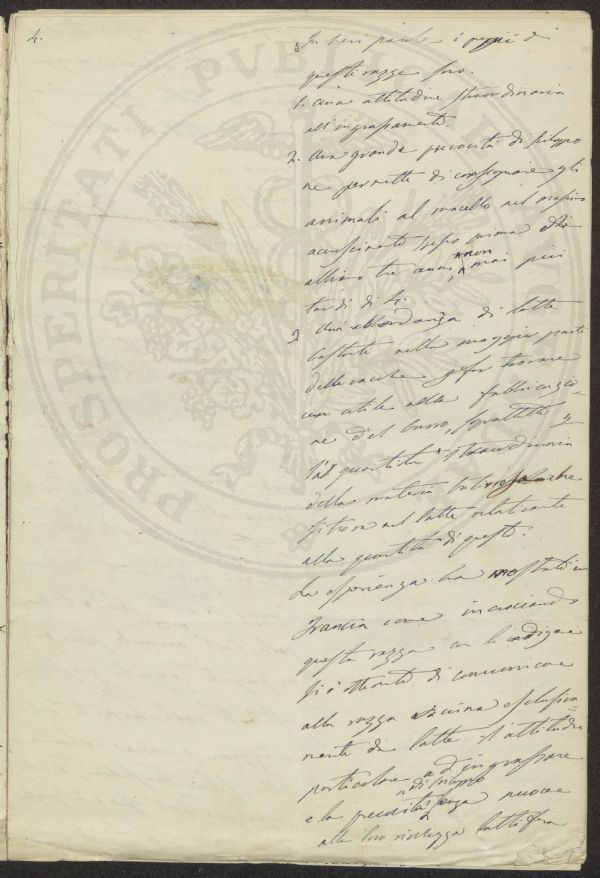 4.
In brevi parole i pregi di
queste razze sono.
1. Una attitudine straordinaria
all'ingrassamento.
2. Una grande precocità di sviluppo
ne permette di consegnare gli
animali al macello nel massimo
accrescimento spesso prima dello
ultimo tre anni, non mai più
tardi di 4.
3. Una abbondanza di latte
costante nella maggior parte
delle vacche
utile nella fabbricazio-
ne del burro, soprattutto
quantità straordinaria
della materia
si trova nel latte relativamente
alla quantità di questo.
La esperienza ha mostrato in
Francia come incrociando
questa razza con le indigene
si è ottenuto di comunicare
alla razza vaccina esclusiva-
mente da latte l'attitudine
particolare ad ingrassare
e la precocità di sviluppo senza nuocere
alla loro ricchezza lattifera
PROSPERITATI PUBLICAE